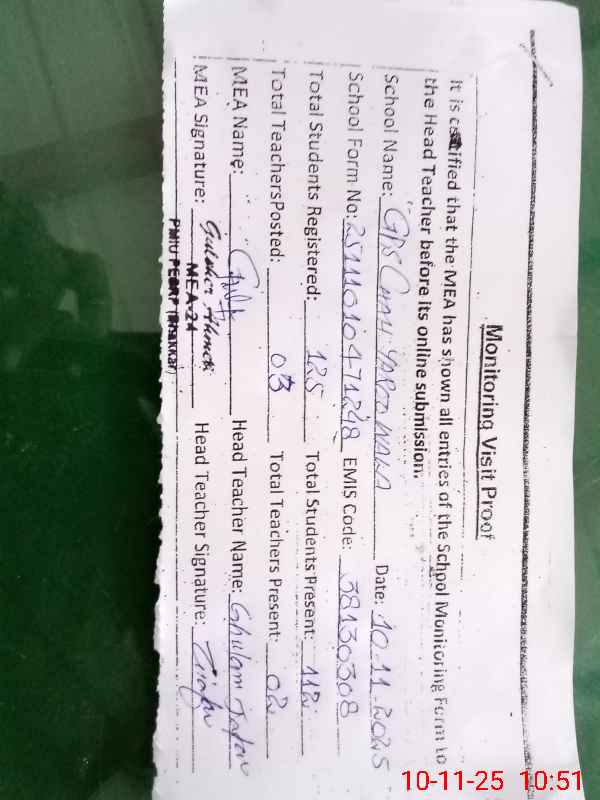 Monitoring Visit Proof
It is certified that the MEA has shown all entries of the School Monitoring Form to
the Head Teacher before its online submission.
School Name: GPS CHAH YAROO WALA Date: 10.11.2025
School Form No: 25111010471248 EMIS Code: 38130308
Total Students Registered: 125 Total Students Present: 112
Total TeachersPosted: 03 Total Teachers Present: 02
MEA Name: Head Teacher Name: Ghulam Jafar
MEA Signature: Head Teacher Signature:
MEA-24
PMIU PESRP (Bhakkar)
10-11-25 10:51